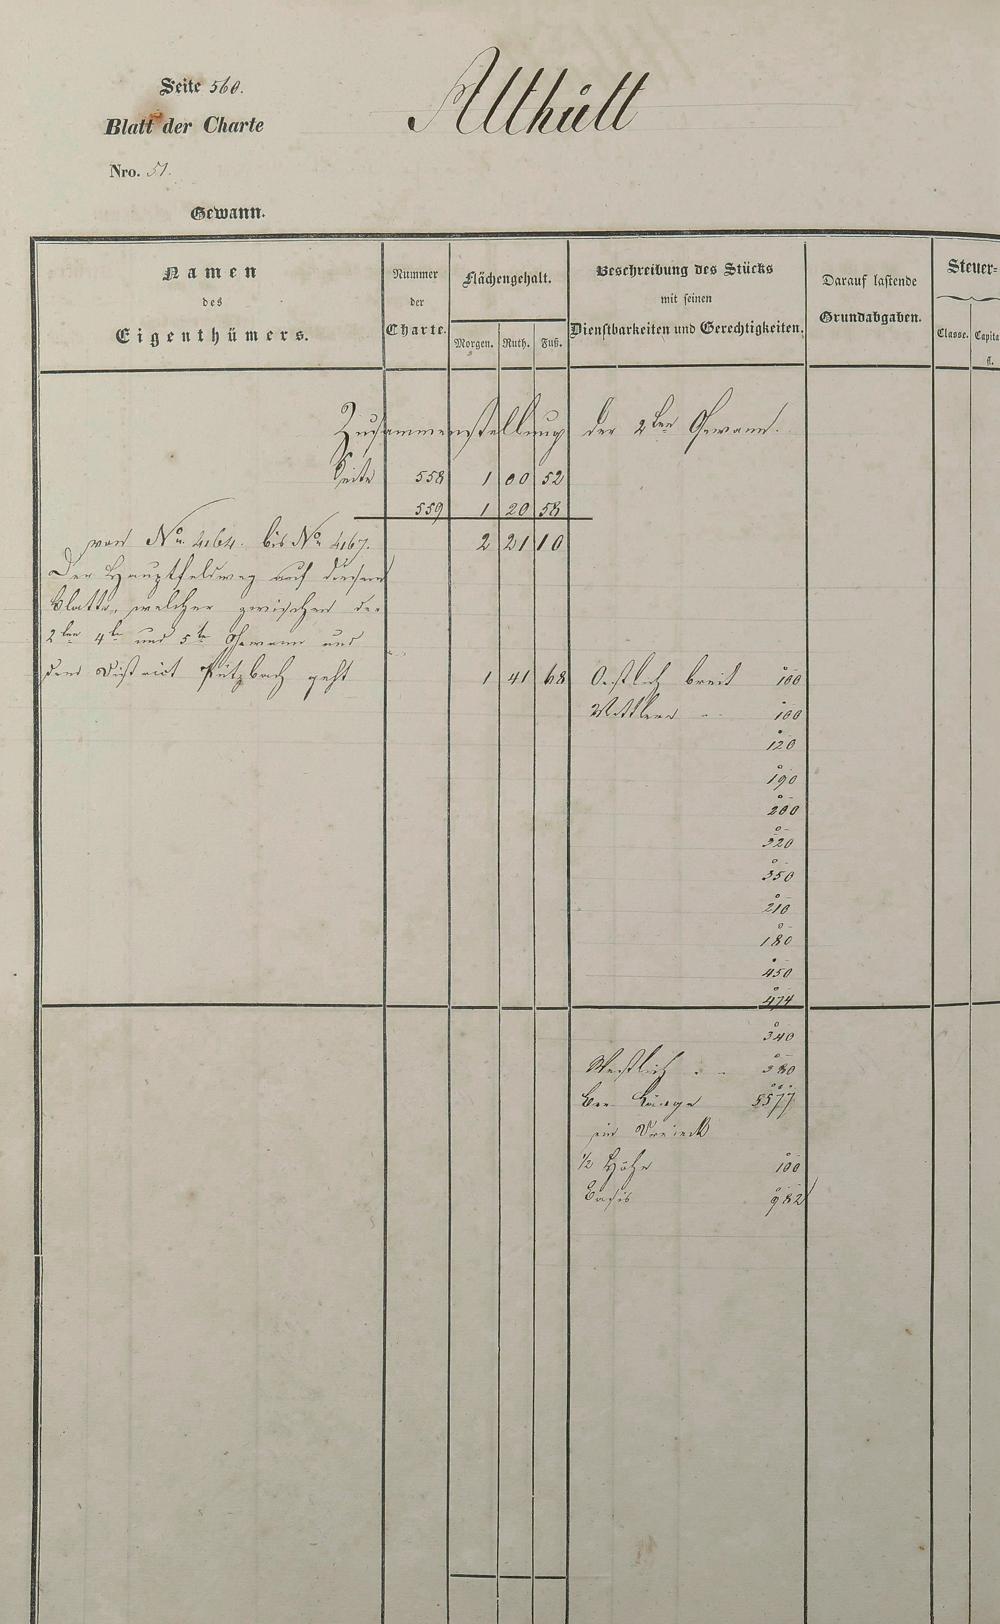 Seite 560.
Althütt
Blatt der Charte
Nro. 51.
Gewann.
Namen
des
Eigenthümers.
Nummer
der
Charte.
Flächengehalt.
Morgen. Ruth. Fuß.
Beschreibung des Stücks
mit seinen
Dienstbarkeiten und Gerechtigkeiten.
Darauf lastende
Grundabgaben.
Steuer-
Classe. Capita
fl.
Zusammenstellung der 2ten Gewann.
Seite 558 1 00 52
559 1 20 58
von No. 464. bis No. 467. 2 21 10
Der Hauptfeldweg auf diesem
Blatte, welcher zwischen der
2ten 4te und 5te Gewann und
dem District Pützbach geht 1 41 68 Oestlich breit 100
Mittlere 100
120
190
200
320
350
210
180
450
474
340
Westlich 380
Länge 5577
ein Dreieck
1/2 Höhe 100
Basis 982